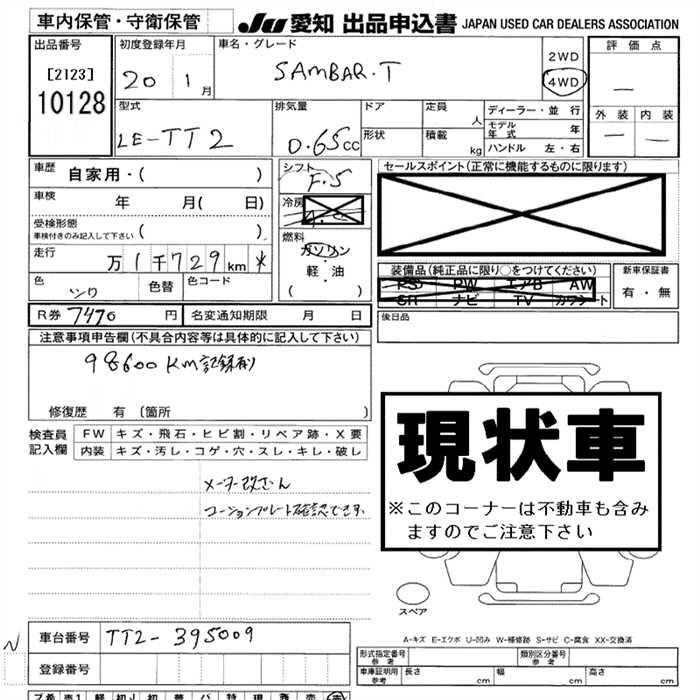 車内保管・守衛保管 JU 愛知 出品申込書 JAPAN USED CAR DEALERS ASSOCIATION
出品番号 初度登録年月 車名・グレード 2WD 評価点
[2123] 20 1月 SAMBAR.T 4WD —
10128
型式 排気量 ドア 定員 人 ディーラー・並行 外装 内装
LE-TT2 0.65cc 形状 積載 kg モデル年式 年 — —
ハンドル 左・右
車歴 自家用・( ) シフト F.5 セールスポイント(正常に機能するものに限ります)
車検 年 月( 日) 冷房
受検形態 ( )
車検付きのみ記入して下さい
燃料 ガソリン
走行 万1千729km * ・
軽・油 装備品(純正品に限り○をつけてください) 新車保証書
色 シロ 色替 色コード ( ) PS PW エアB AW 有・無
SR ナビ TV カワシート
R券 7470 円 名変通知期限 月 日 後日品
注意事項申告欄(不具合内容等は具体的に記入して下さい)
98600KM記録有り
修復歴 有 (箇所 )
現状車
※このコーナーは不動車も含み
ますのでご注意下さい
検査員 FW キズ・飛石・ヒビ割・リペア跡・X要
記入欄 内装 キズ・汚レ・コゲ・穴・スレ・キレ・破レ
メーター改ざん
コーションプレート確認できず.
スペア
A-キズ E-エクボ U-凹み W-補修跡 S-サビ C-腐食 XX-交換済
N 車台番号 TT2-395009
形式指定番号 参考 類別区分番号 参考
登録番号 車庫証明用 参考 長さ cm 幅 cm 高さ cm